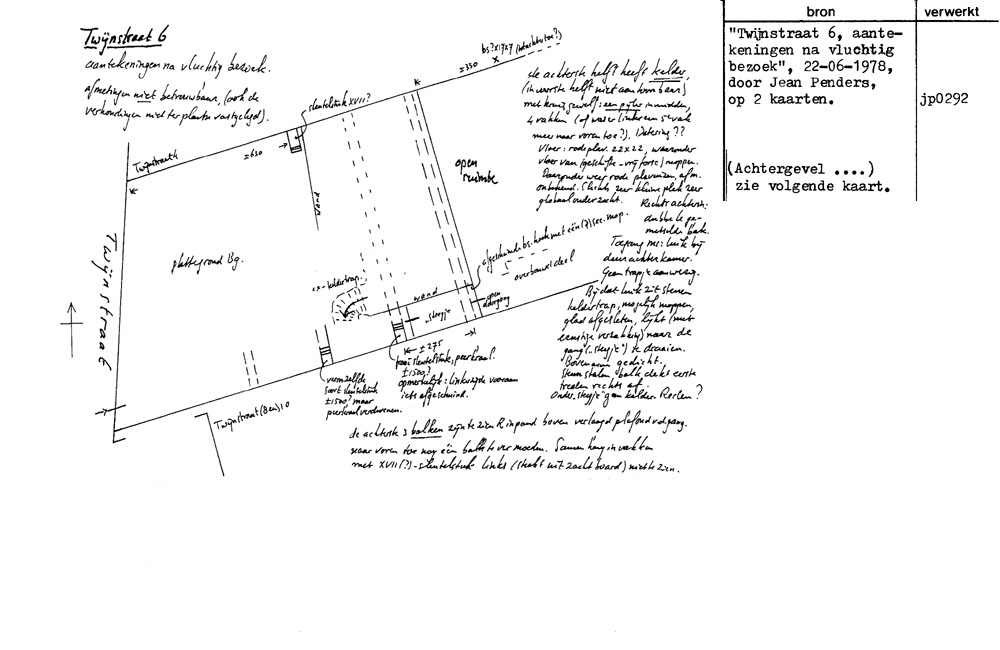 Twijnstraat 6
aantekeningen na vluchtig bezoek.
afmetingen niet betrouwbaar, (ook de
verhoudingen niet ter plaatse vastgelegd).
Twijnstr. 4
± 630
sleutelstuk XVII?
± 350
bs. ? x 17 x 7
wand
open
ruimte
plattegrond Bg.
Twijnstraat
ex-keldertrap.
wand
steegje
open
doorgang
± 275
Twijnstraat (8 en) 10
afgeschuinde bs. hoek met één (?) sec. mop.
overbouwd deel
de achterste helft heeft kelder,
(in voorste helft niet aantoonbaar)
met kruisgewelf: een pijler in midden,
4 vakken (of was er links een 5e vak
meer naar voren toe?). Datering ??
Vloer: rode plav. 22 x 22, waaronder
vloer van (geschifte - vrij forse) moppen.
Daaronder weer rode plavuizen, afm.
onbekend. Slechts zeer kleine plek zeer
globaal onderzocht.
Rechts achterin:
dubbele ge-
metselde bank.
Toegang nu: luik bij
deur achterkamer.
Geen trapje aanwezig.
Bij dat luik zit stenen
keldertrap, mogelijk moppen,
glad afgesleten, lijkt (met
enige verzakking) naar de
gang ("steegje") te draaien.
Bovenaan gedicht.
Steunstalen balk dekt eerste
treden rechts af.
Onder "steegje" geen kelder. Riolen?
vermoedelijk
soort sleutelstuk
± 1500? maar
peerkraal verdwenen.
paar sleutelstuk, peerkraal.
± 1500?
opmerkelijk: linkerzijde vooraan
iets afgeschuind.
de achterste 3 balken zijn te zien R in pand boven verlaagd plafond v. d. gang.
naar voren toe nog één balk te vermoeden. Samenhang in vakken
met XVII (?) - sleutelstuk links (steekt uit zachtboard) niet te zien.
bron
verwerkt
"Twijnstraat 6, aante-
keningen na vluchtig
bezoek", 22-06-1978,
door Jean Penders,
op 2 kaarten.
jp0292
(Achtergevel ....)
zie volgende kaart.